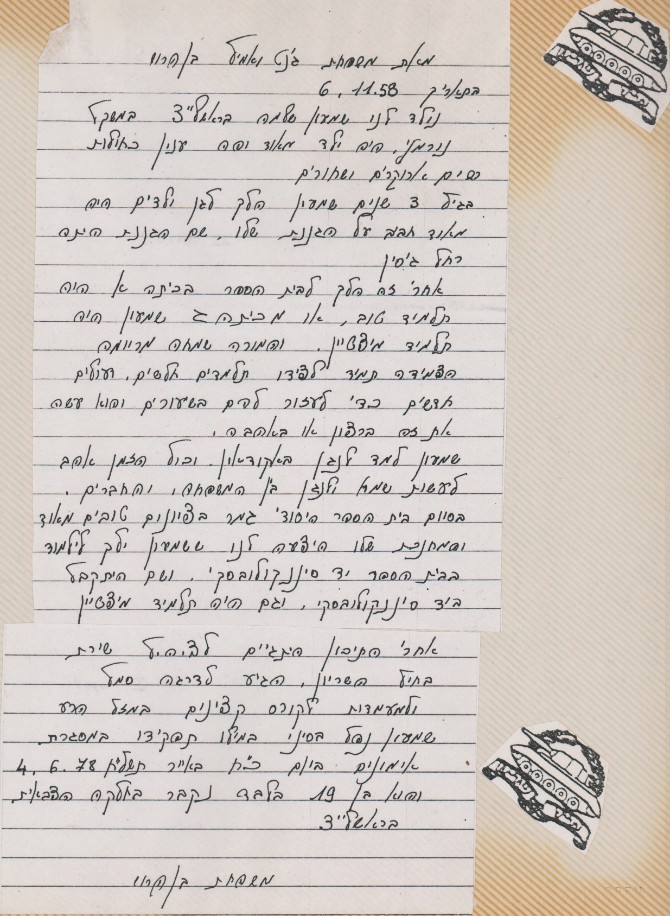 מאת משפחת ג'נט ואמיל בן הרוש
בתאריך 6.11.58
נולד לנו שמעון שלמה בראשל"צ במשקל
נורמלי. היה ילד מאוד יפה עניין כחולות
ארוקים ושחורים
בגיל 3 שנים שמעון הלך לגן ילדים היה
מאוד חבב על הגננת שלו. שם הגננת היתה
רחל
אחרי זה הלך לבית הספר בכיתה א היה
תלמיד טוב, או מכיתה ג שמעון היה
תלמיד מיצטיין. והמורה שמחה מריומה
הצמידה תמיד לצידו תלמדים חלשים, ועולים
חדשים כדי לעזור להם בשיעורים והוא עשה
את זה ברצון או באהבה.
שמעון למד לנגן באקודאון. וכול הזמן אהב
לעשות שמח ולנגן בין המשפחה, והחברים.
בסיום בית הספר היסודי גמר בציונים טובים מאוד
והמחנכת שלו היצעה לנו ששמעון ילך לילמוד
בבית הספר יד סינגקולובסקי. ושם היתקבל
ביד סינגקולובסקי. וגם היה תלמיד מיצטיין
אחרי התיכון התגייס לצ.ה.ל שירת
בחיל השריון. הגיע לדרגה סמל
ולמעמדות לקורס קצינים במזל הרע
שמעון נפל בסיני במילוי תפקידו במסגרת
אימונים ביום כ"ח באייר תשל"ח 4.6.78
והוא בן 19 בלבד נקבר בחלקה הצבאית
בראשל"צ
משפחת בן הרוש